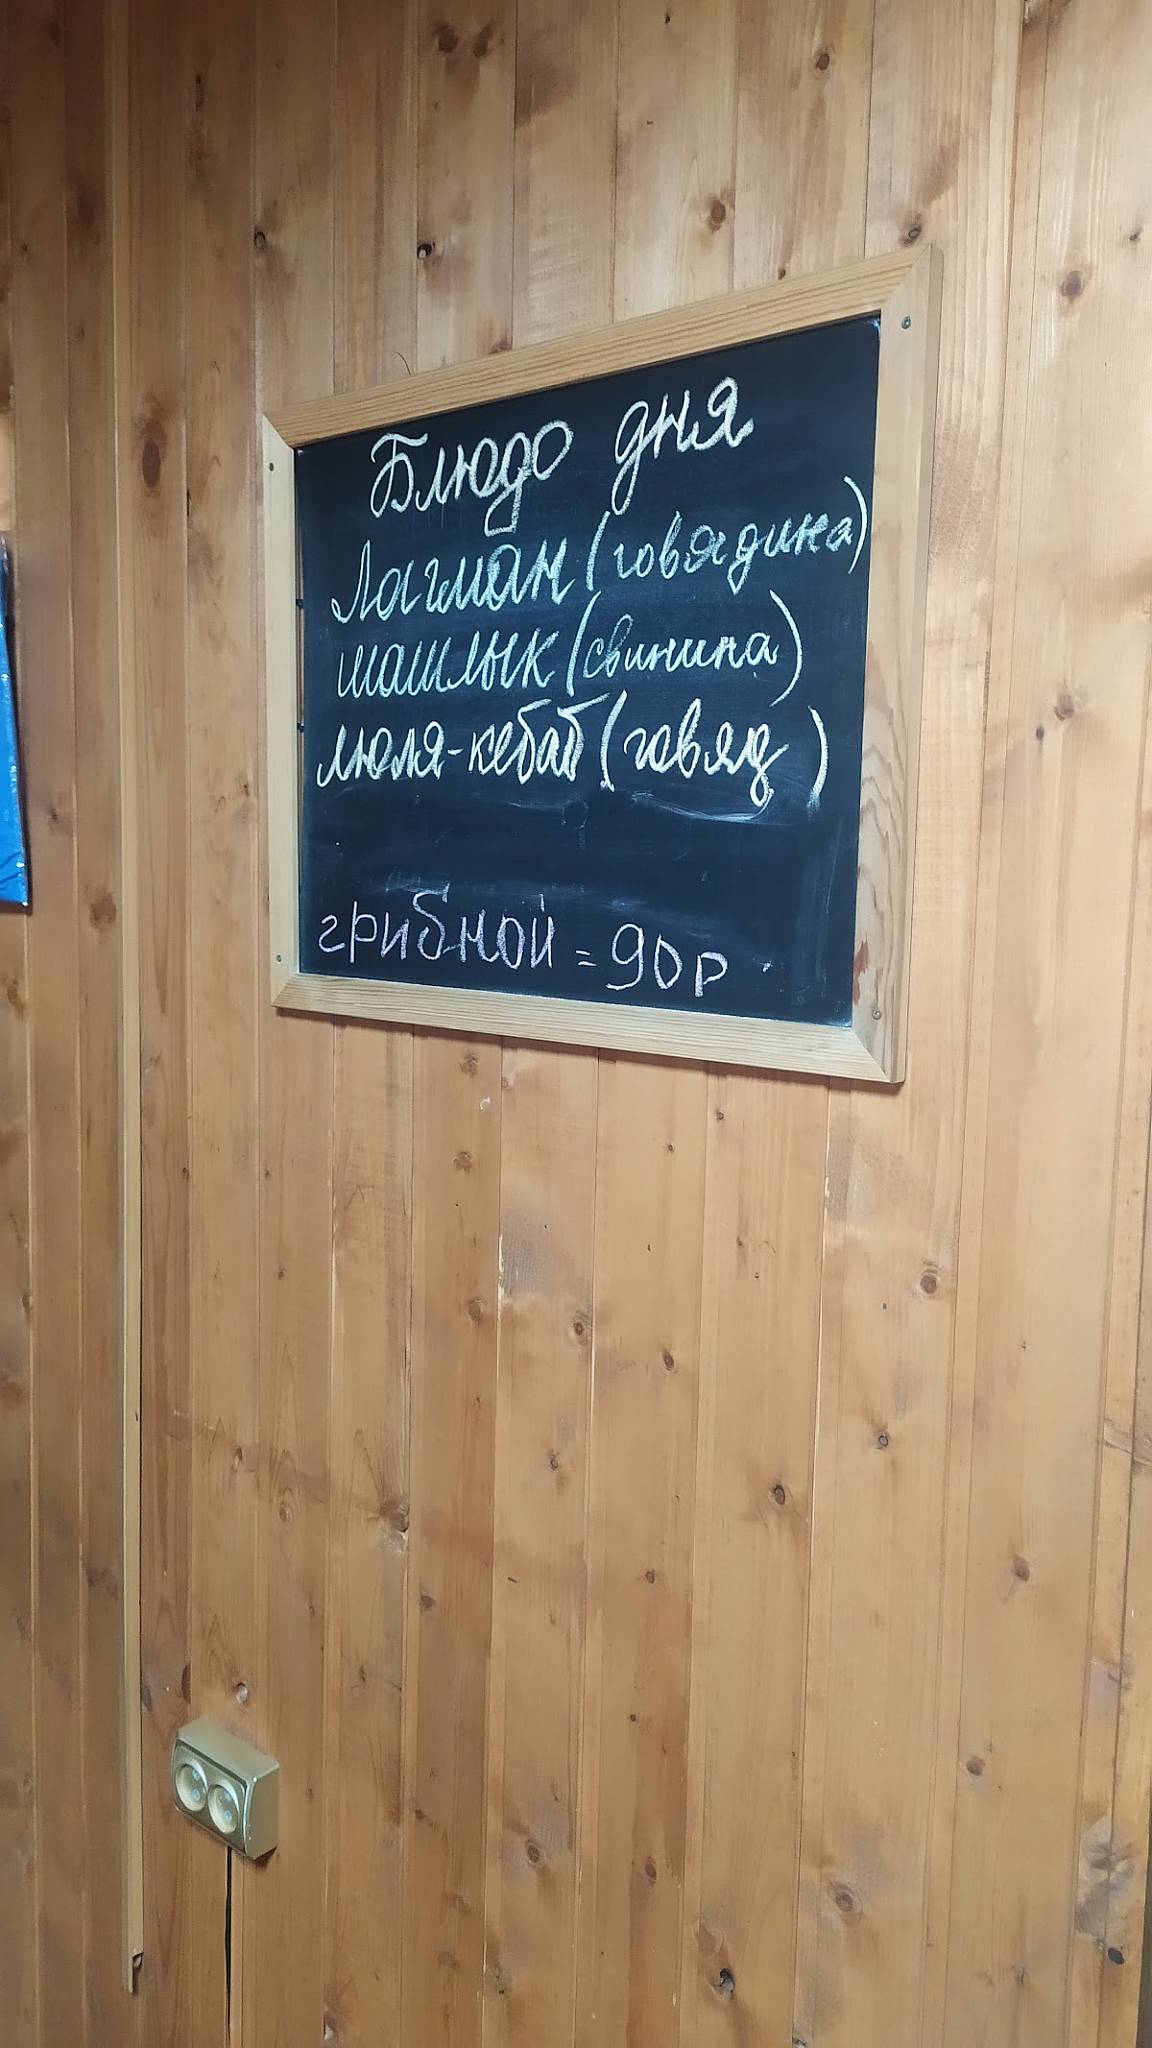 Блюдо дня
Лагман (говядина)
шашлык (свинина)
люля-кебаб (говяд )
грибной = 90 р